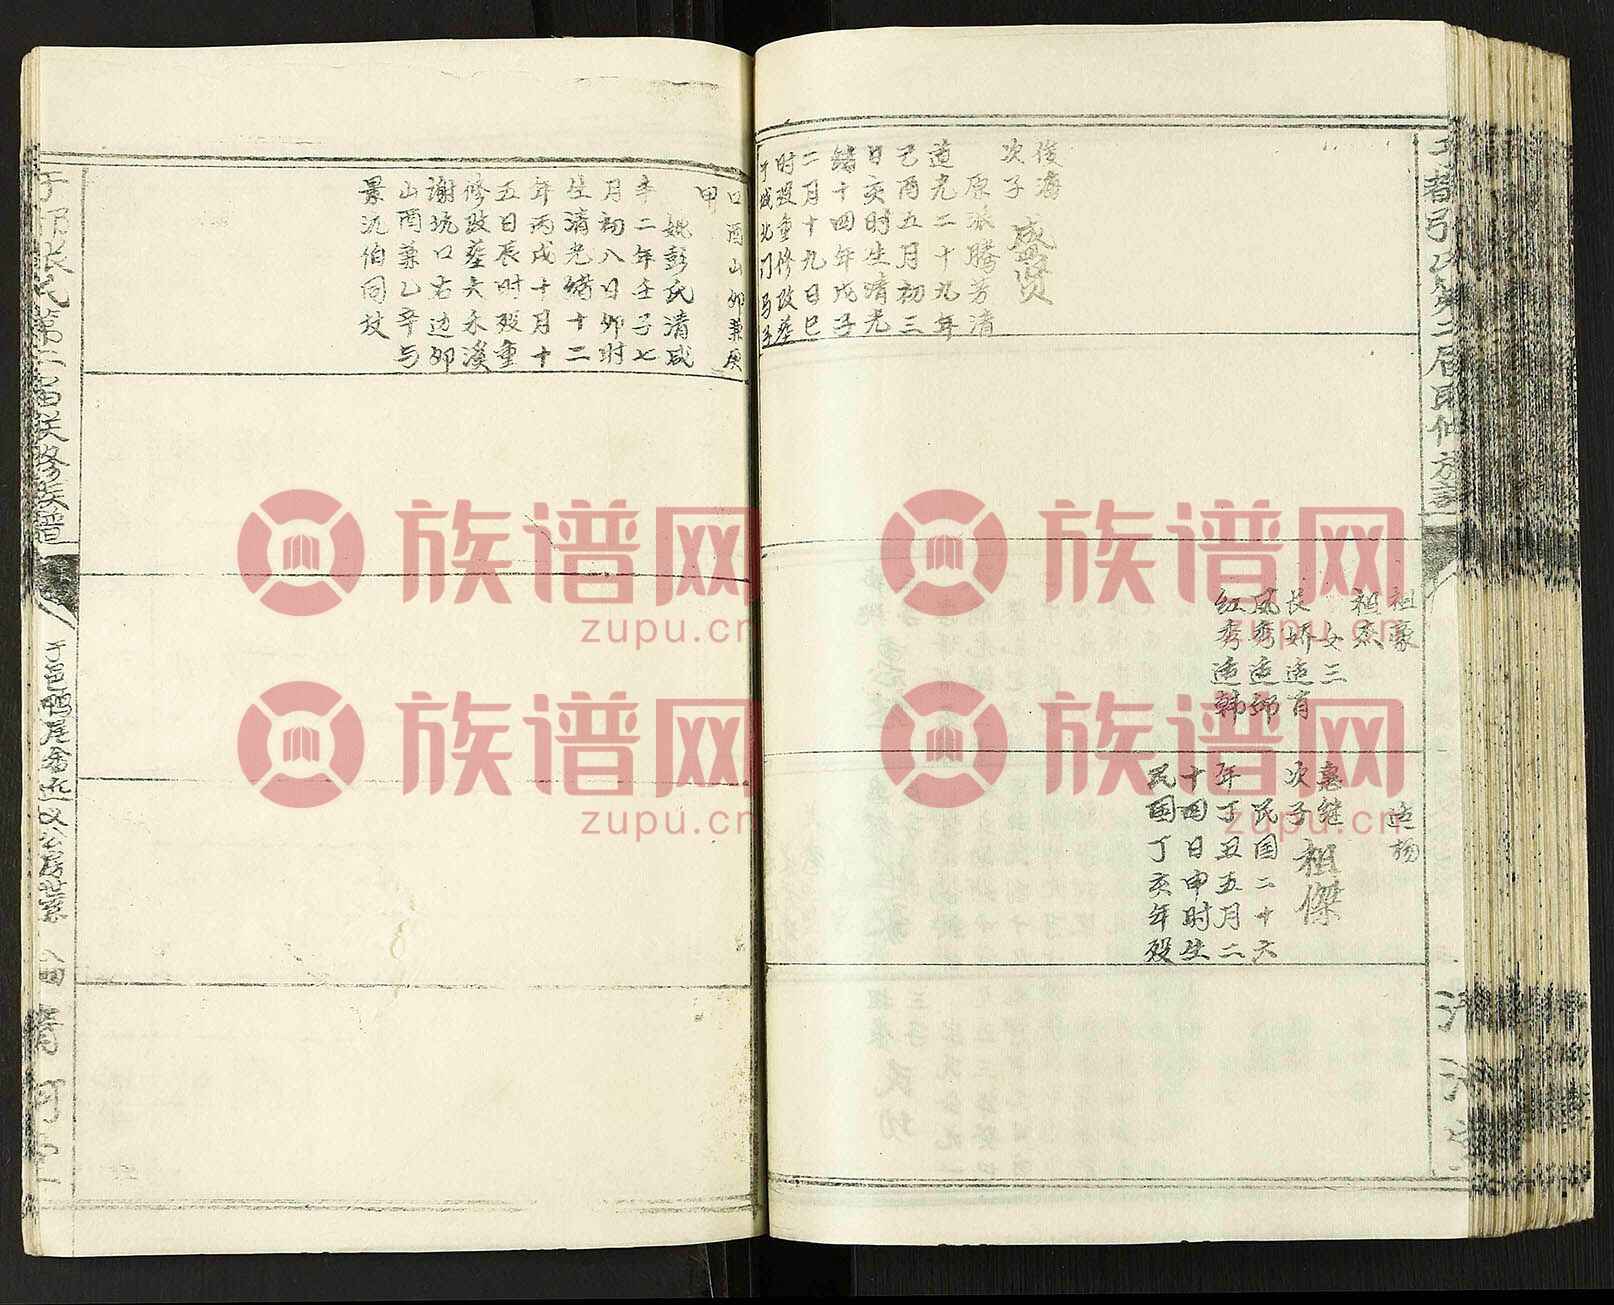 俊海
次子 盛贤
原张腾芳清
道光二十九年
己酉五月初三
日亥时生清光
绪十四年戊子
二月十九日巳
时殁重修改葬
于城北门马子
祖豪
祖杰
女三
长娇适肖
凤秀适邱
红秀适韩
适杨
惠继
次子 祖傑
民国二十六
年丁丑五月二
十四日申时生
民国丁亥年殁
口酉山卯兼庚
甲
娩彭氏清咸
辛二年壬子七
月初八日卯时
生清光绪十二
年丙戌十月十
五日辰时殁重
修改葬大禾溪
谢坑口右边卯
山酉兼乙辛与
景沉伯同坟
张氏第二届联修族谱
清河堂
族谱网
zupu.cn
族谱网
zupu.cn
族谱网
zupu.cn
族谱网
zupu.cn